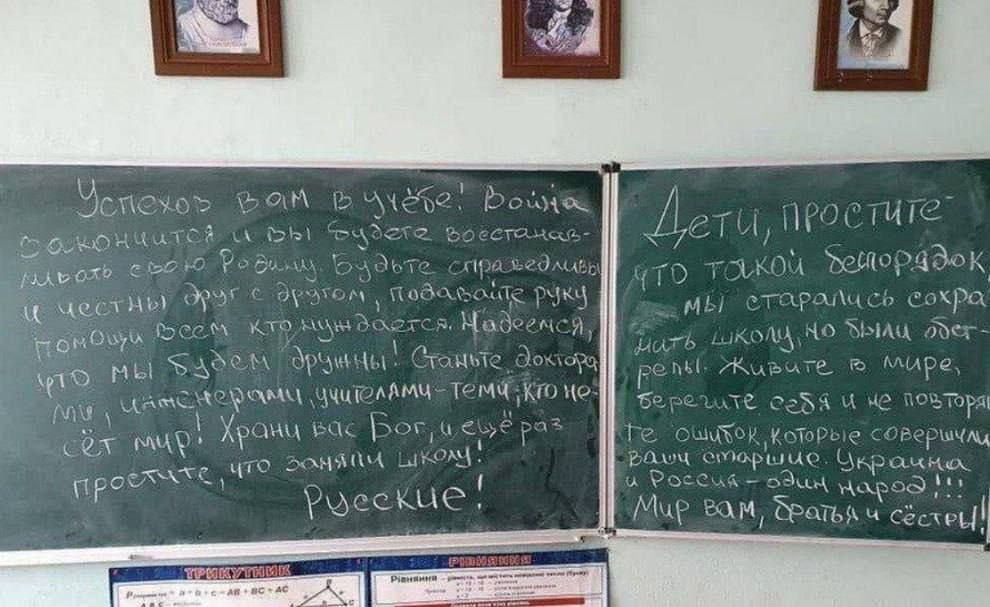 Успехов вам в учёбе! Война
закончится и вы будете восстанав-
ливать свою Родину. Будьте справедливы
и честны друг с другом, подавайте руку
помощи всем кто нуждается. Надеемся,
что мы будем дружны! Станьте доктора-
ми, инженерами, учителями-теми, кто не-
сёт мир! Храни вас Бог, и ещё раз
простите, что заняли школу!
Русские!
Дети, простите
что такой беспорядок,
мы старались сохра
нить школу, но были обст-
релы. Живите в мире,
берегите себя и не повторяй
те ошибок, которые совершили
ваши старшие. Украина
и Россия-один народ!!!
Мир вам, братья и сёстры!
ТРИКУТНИК
= a + b + c = AB + BC + AC
РІВНЯННЯ
Рівняння - рівність, що містить невідоме число (букву)